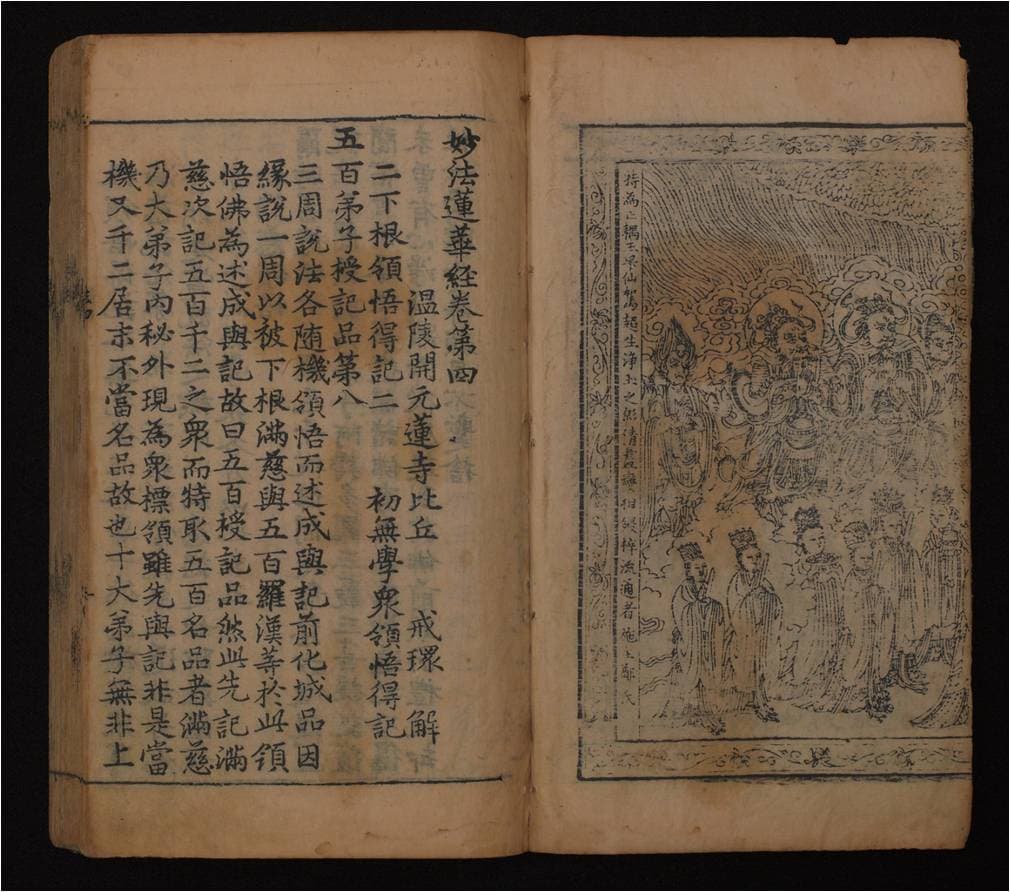 特為亡耦王 仙駕超生淨土之願請畫變相鋟梓流通者施主鄭氏
妙法蓮華経卷第四
温陵開元蓮寺比丘 戒環 解
二下根領悟得記二 初無學衆領悟得記
五百弟子授記品第八
三周說法各随機領悟而述成與記前化城品因
緣說一周以被下根滿慈與五百羅漢等於此領
悟佛為述成與記故曰五百授記品然此先記滿
慈次記五百千二之衆而特取五百名品者滿慈
乃大弟子內秘外現為衆標領雖先與記非是當
機又千二居末不當名品故也十大弟子無非上